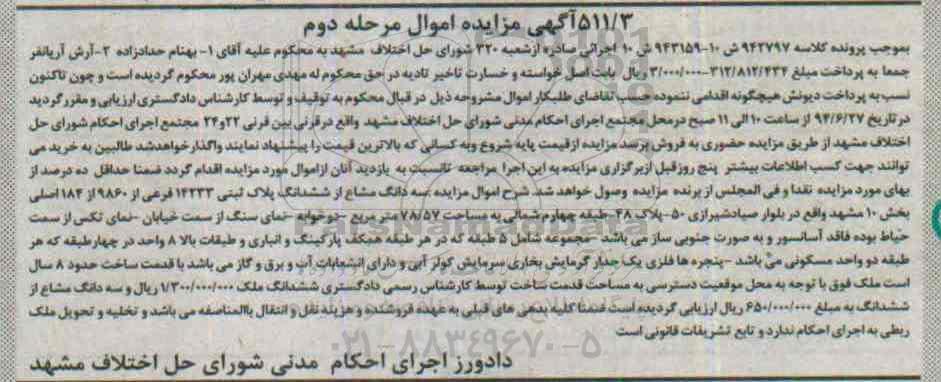 ۵۱۱/۳آگهی مزایده اموال مرحله دوم
بموجب پرونده کلاسه ۹۴۲۷۹۷ ش ۱۰-۹۴۳۱۵۹ ش ۱۰ اجرائی صادره ازشعبه ۳۲۰ شورای حل اختلاف مشهد به محکوم علیه آقای ۱- بهنام حدادزاده ۲-آرش آریانفر
جمعا به پرداخت مبلغ ۳۱۲/۸۱۲/۴۳۴-۳/۰۰۰/۰۰۰ ریال بابت اصل خواسته و خسارت تاخیر تادیه در حق محکوم له مهدی مهران پور محکوم گردیده است و چون تاکنون
نسب به پرداخت دیونش هیچگونه اقدامی ننموده حسب تقاضای طلبکار اموال مشروحه ذیل در قبال محکوم به توقیف و توسط کارشناس دادگستری ارزیابی و مقرر گردید
در تاریخ ۹۴/۶/۲۷ از ساعت ۱۰ الی ۱۱ صبح درمحل مجتمع اجرای احکام مدنی شورای حل اختلاف مشهد واقع درقرنی بین قرنی ۲۲و۲۴ مجتمع اجرای احکام شورای حل
اختلاف مشهد از طریق مزایده حضوری به فروش برسد مزایده ازقیمت پایه شروع وبه کسانی که بالاترین قیمت را پیشنهاد نمایند واگذار خواهدشد طالبین به خرید می
توانند جهت کسب اطلاعات بیشتر پنج روزقبل ازبرگزاری مزایده به این اجرا مراجعه تانسبت به بازدید آنان ازاموال مورد مزایده اقدام گردد ضمنا حداقل ده درصد از
بهای مورد مزایده نقدا و فی المجلس از برنده مزایده وصول خواهد شد شرح اموال مزایده سه دانگ مشاع از ششدانگ پلاک ثبتی ۱۴۲۳۳ فرعی از ۹۸۶۰ از ۱۸۴ اصلی
بخش ۱۰ مشهد واقع در بلوار صیادشیرازی ۵۰-پلاک ۴۸-طبقه چهارم شمالی به مساحت ۷۸/۵۷ متر مربع -دوخوابه -نمای سنگ از سمت خیابان -نمای تکس از سمت
حیاط بوده فاقد آسانسور و به صورت جنوبی ساز می باشد -مجموعه شامل ۵ طبقه که در هر طبقه همکف پارکینگ و انباری و طبقات بالا ۸ واحد در چهارطبقه که هر
طبقه دو واحد مسکونی می باشد -پنجره ها فلزی یک جدار گرمایش بخاری سرمایش کولر آبی و دارای انشعابات آب و برق و گاز می باشد با قدمت ساخت حدود ۸ سال
است ملک فوق با توجه به محل موقعیت دسترسی به مساحت قدمت ساخت توسط کارشناس رسمی دادگستری ششدانگ ملک ۱/۳۰۰/۰۰۰/۰۰۰ ریال و سه دانگ مشاع از
ششدانگ به مبلغ ۶۵۰/۰۰۰/۰۰۰ ریال ارزیابی گردیده است ضمنا کلیه بدهی های قبلی به عهده فروشنده و هزینه نقل و انتقال باالمناصفه می باشد و تخلیه و تحویل ملک
ربطی به اجرای احکام ندارد و تابع تشریفات قانونی است
دادورز اجرای احکام مدنی شورای حل اختلاف مشهد
ParsNamadData
۰۲۱-۸۸۳۴۹۶۷۰-۵